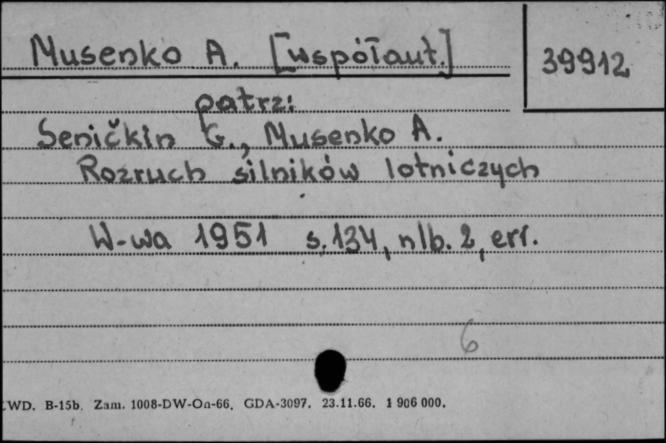 Musenko A. [współaut.]
39912
patrz:
Seničkin G., Musenko A.
Rozruch silników lotniczych
W-wa 1951 s. 134, nlb. 2, err.
6
WD. B-15b. Zam. 1008-DW-Oa-66. GDA-3097. 23.11.66. 1 906 000.